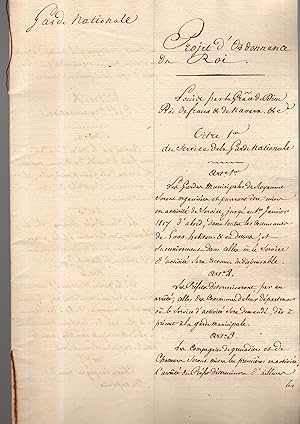 Garde Nationale
Projet d'Ordonnance
du Roi.
Louis par la Grâce de Dieu
Roi de france & de Navarre, &c.
Titre 1er
du Service de la Garde Nationale
Art. 1er
Les Gardes Municipales du Royaume
seront organisées et pourront être mises
en activité de Service, jusqu'au 1er Janvier
1817 d'abord, dans toutes les Communes
de 5000 habitans & au dessus, et
successivement dans celles où le Service
d'activité sera reconnu indispensable.
Art. 2.
Les Préfets détermineront, par un
arrêté, celles des Communes de leur département
où le Service d'activité sera demandé, dès à
présent à la garde municipale.
Art. 3
Les Compagnies de grenadiers et de
Chasseurs seront mises les premières en activité
L'arrêté du Préfet déterminera d'ailleurs
les